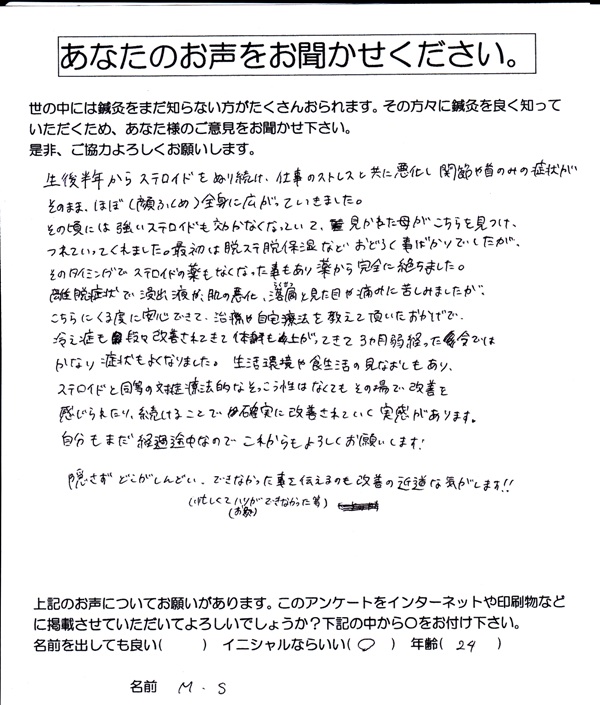 あなたのお声をお聞かせください。
世の中には鍼灸をまだ知らない方がたくさんおられます。その方々に鍼灸を良く知って
いただくため、あなた様のご意見をお聞かせ下さい。
是非、ご協力よろしくお願いします。
生後半年からステロイドをぬり続け、仕事のストレスと共に悪化し関節や首のみの症状が
そのまま、ほぼ(顔ふくめ)全身に広がっていきました。
その頃には強いステロイドも効かなくなっていて、見かねた母がこちらを見つけ、
つれていってくれました。最初は脱ステ脱保湿などおどろく事ばかりでしたが、
そのタイミングでステロイドの薬もなくなった事もあり薬から完全に絶ちました。
離脱症状で浸出液が、肌の悪化、落屑と見た目や痛みに苦しみましたが、
こちらにくる度に安心できて、治療や自宅療法を教えて頂いたおかげで、
冷え症も段々改善されてきて体温も上がってきて3ヵ月弱経った今では
かなり症状もよくなりました。生活環境や食生活の見なおしもあり、
ステロイドと同等の対症療法的なそっこう性はなくてもその場で改善を
感じられたり、続けることで確実に改善されていく実感があります。
自分もまだ経過途中なのでこれからもよろしくお願いします!
隠さずどこがしんどい、できなかった事を伝えるのも改善の近道な気がします!!
(忙しくてハリができなかった等)
(お灸)
上記のお声についてお願いがあります。このアンケートをインターネットや印刷物など
に掲載させていただいてよろしいでしょうか?下記の中から○をお付け下さい。
名前を出しても良い( ) イニシャルならいい(○) 年齢(24)
名前 M.S